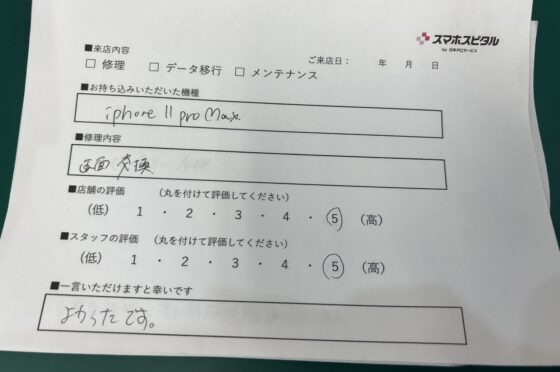 スマホスピタル
by 日本PCサービス
■来店内容
ご来店日： 年 月 日
□ 修理 □ データ移行 □ メンテナンス
■お持ち込みいただいた機種
iphone 11 pro Max
■修理内容
画面交換
■店舗の評価 （丸を付けて評価してください）
（低） 1 ・ 2 ・ 3 ・ 4 ・ 5 （高）
■スタッフの評価 （丸を付けて評価してください）
（低） 1 ・ 2 ・ 3 ・ 4 ・ 5 （高）
■一言いただけますと幸いです
よかったです。